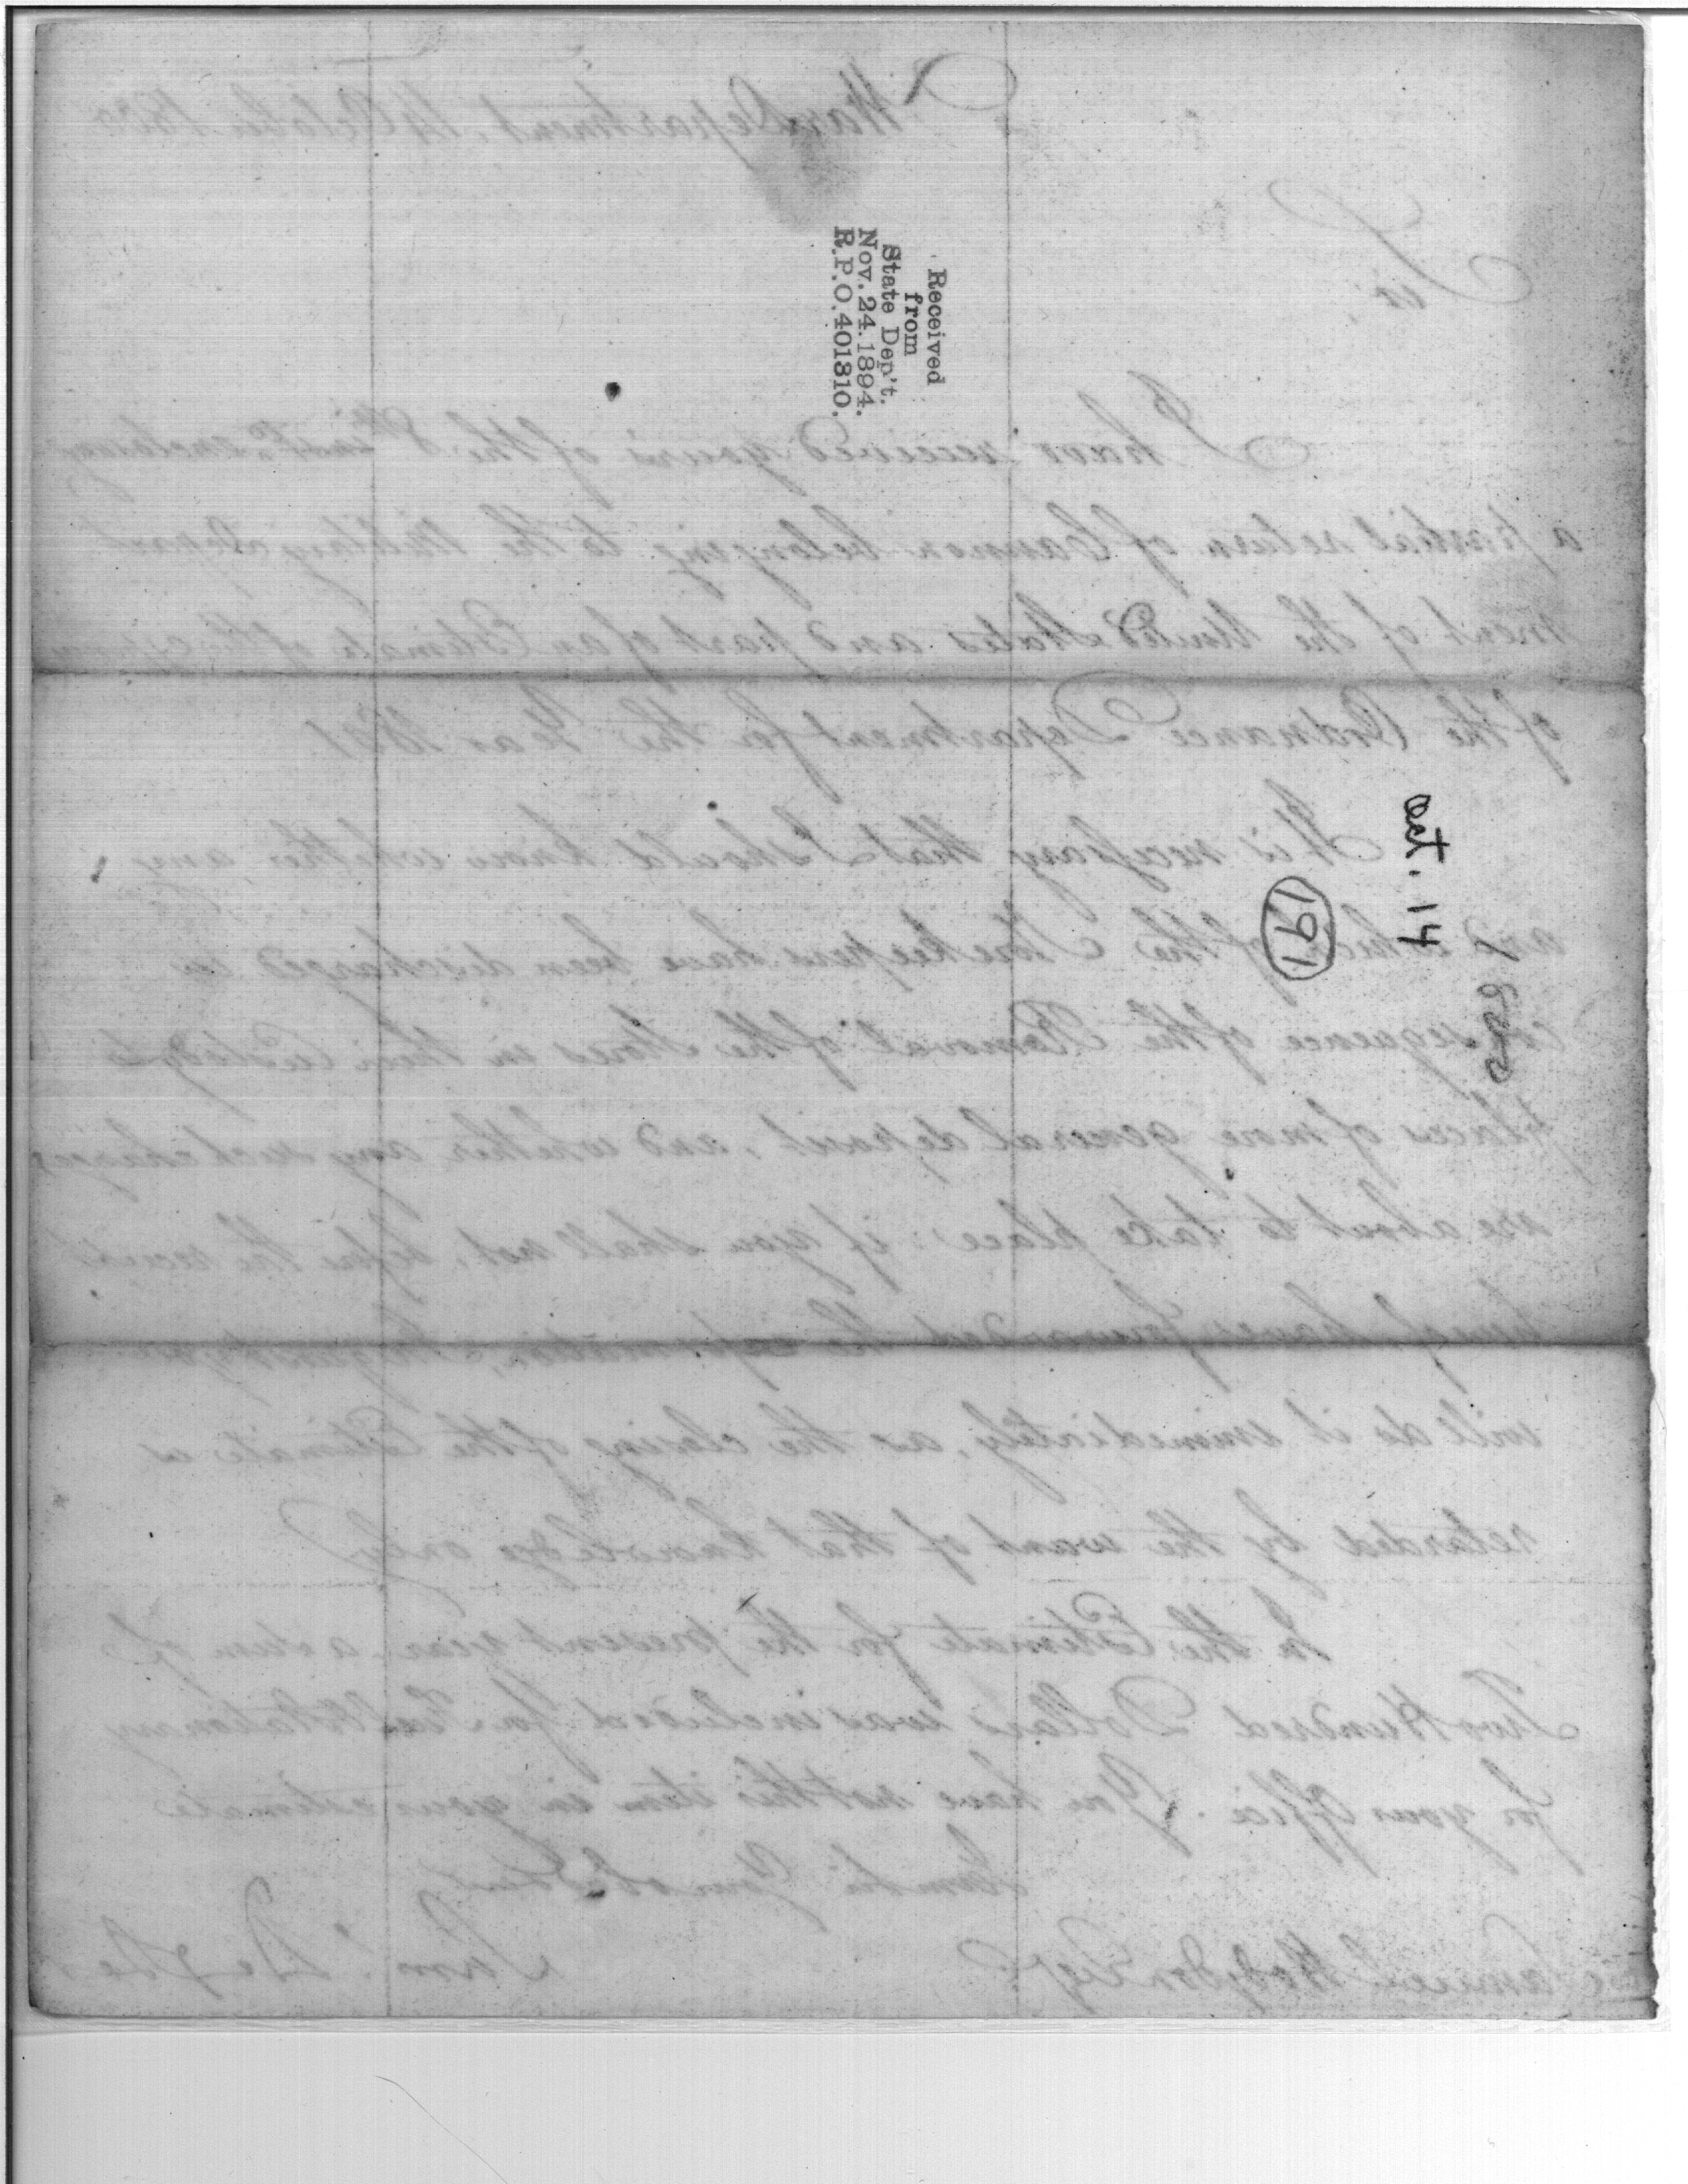 War Department, 14 October 1800
Sir,
I have received yours of the 8th inst. enclosing
a partial return of Cannon belonging to the Military Depart
ment of the United States and part of an Estimate of the
of the Ordnance Department for the Year 1801
It is necessary that I should know whether any
and which of the Storekeepers have been discharged in
consequence of the Removal of the Stores in their custody to
places of more general deposit, and whether any such changes
are about to take place: if you shall not, before the receipt
have forwarded the information,
will do it immediately, as the closing of the Estimate is
retarded by the want of that knowledge only
In the Estimate for the present year a sum of
Two Hundred Dollars was included for Stationary
for your Office. You have not this item in your estimate
Samuel Hodgdon Esqr.
Sam. Dexter
Received
from
State Dep't.
Nov. 24. 1894.
R.P.O. 401810.
Oct. 14
1800
191